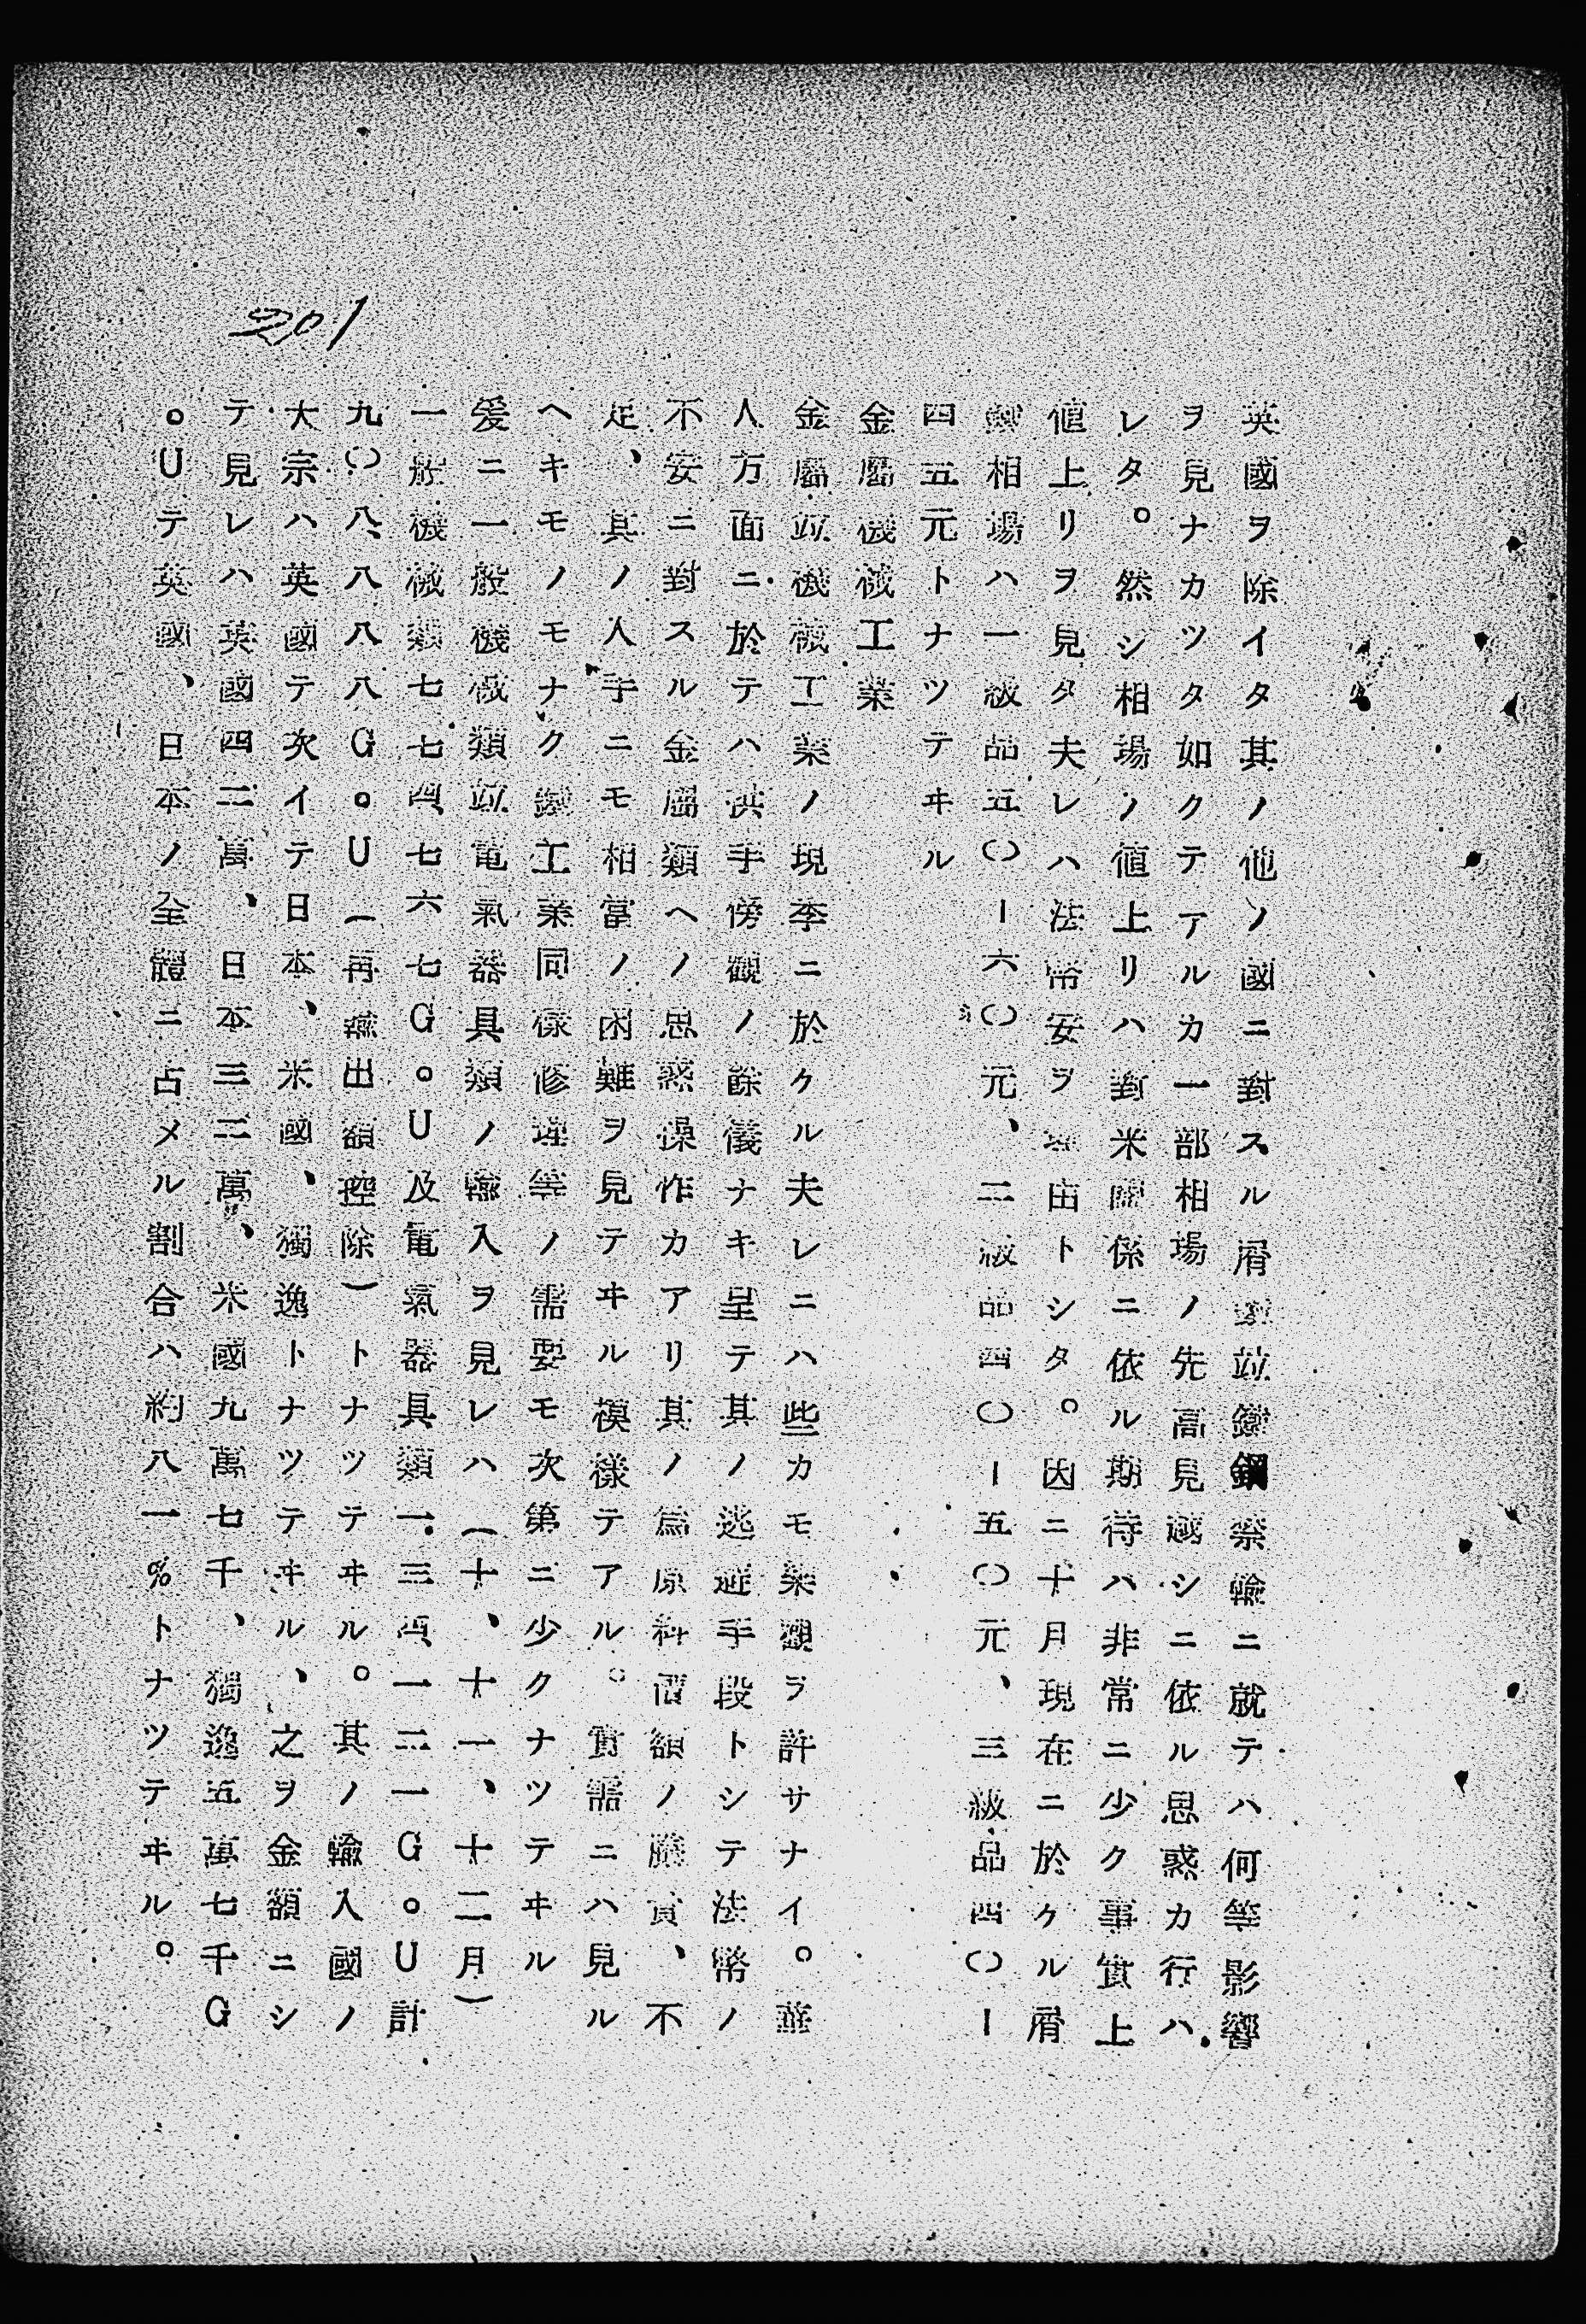 201
英國ヲ除イタ其ノ他ノ國ニ對スル屑鐵竝鐵鋼禁輸ニ就テハ何等影響
ヲ見ナカツタ如クテアルカ一部相場ノ先高見越シニ依ル思惑カ行ハ
レタ。然シ相場ノ値上リハ對米關係ニ依ル期待ハ非常ニ少ク事實上
値上リヲ見タ夫レハ法幣安ヲ理由トシタ。因ニ十月現在ニ於クル屑
鐵相場ハ一級品五〇ー六〇元、二級品四〇ー五〇元、三級品四〇ー
四五元トナツテヰル
金屬機械工業
金屬竝機械工業ノ現季ニ於クル夫レニハ些カモ樂觀ヲ許サナイ。華
人方面ニ於テハ拱手傍觀ノ餘儀ナキ呈テ其ノ逃避手段トシテ法幣ノ
不安ニ對スル金屬類ヘノ思惑操作カアリ其ノ爲原料價額ノ騰貴、不
足、其ノ入手ニモ相當ノ困難ヲ見テヰル模樣テアル。實需ニハ見ル
ヘキモノモナク鐵工業同樣修理等ノ需要モ次第ニ少クナツテヰル
爰ニ一般機械類竝電氣器具類ノ輸入ヲ見レハ（十、十一、十二月）
一般機械類七七四、七六七G。U及電氣器具類一三四、一二一G。U計
九〇八、八八八G。U（再輸出額控除）トナツテヰル。其ノ輸入國ノ
大宗ハ英國テ次イテ日本、米國、獨逸トナツテヰル、之ヲ金額ニシ
テ見レハ英國四二萬、日本三三萬、米國九萬七千、獨逸五萬七千G
。Uテ英國、日本ノ全體ニ占メル割合ハ約八一％トナツテヰル。